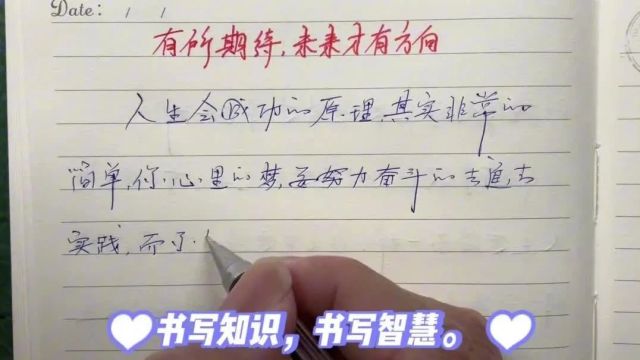 Date: / /
有所期待,未来才有方向
人生会成功的原理,其实非常的
简单,你心里的梦,要努力奋斗的去追,去
实践,而不
书写知识，书写智慧。